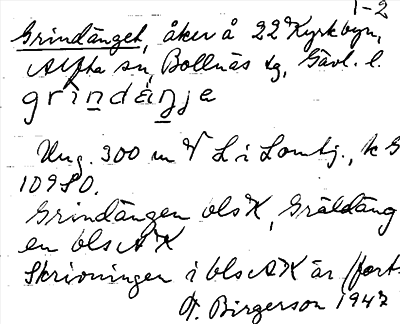 1-2
Grindänget, åker å 22 Kyrkbyn,
Alfta sn, Bollnäs tg, Gävl. l.
grindäŋja
Ung. 300 m V L i Lomtj., k G
10980.
Grindängen bls K, Gräldäng
en bls A K
Skrivningen i bls A K är (forts
F. Birgerson 1947